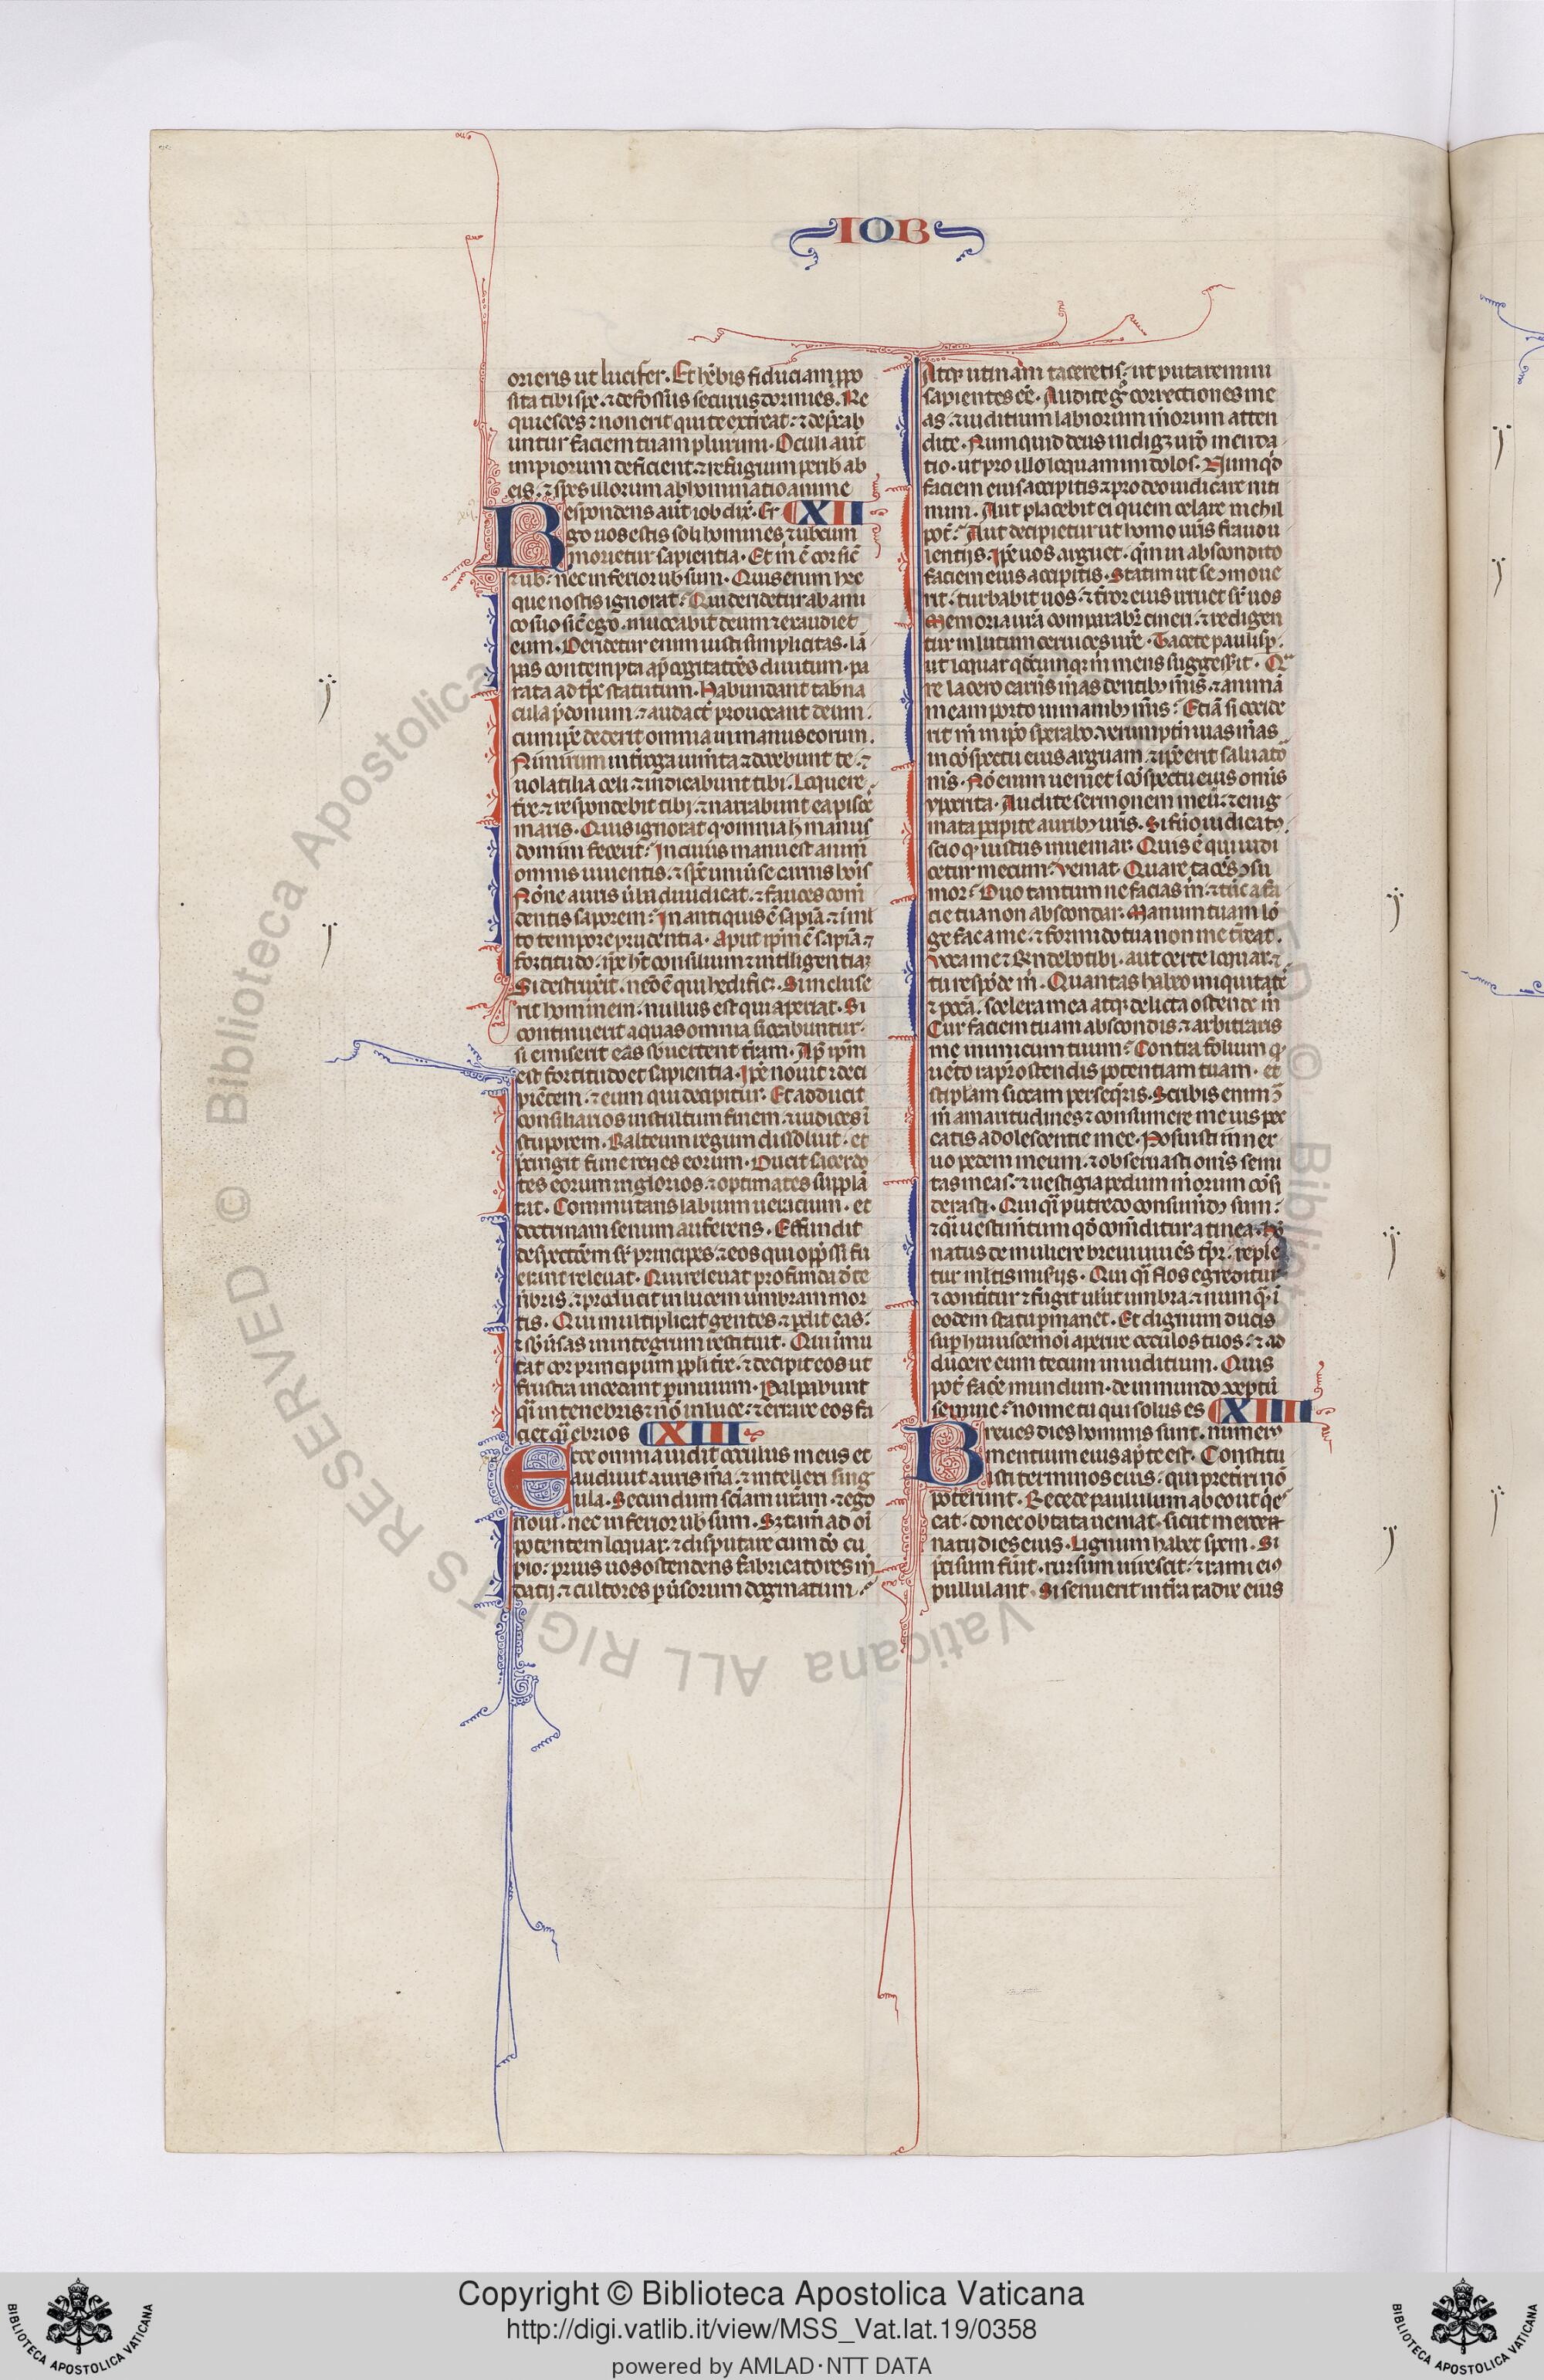 IOB
orieris ut lucifer. Et hēbis fiduciam ꝓpo
sita tibi spe. ⁊ defossus securus dormies. Re
quiesces ⁊ non erit qui te exterreat. ⁊ dep̄cab
untur faciem tuam plurimi. Oculi aut̄
impiorum deficient. ⁊ refugium perib̄ ab
eis. ⁊ spes illorum abhominatio anime
Respondens aut̄ iob dix̄. Er XII
go uos estis soli homines ⁊ uobiscum
morietur sapientia. Et m̄ ē cor sic̄
⁊ uob̄. nec inferior uob̄ sum. Quis enim hec
que nostis ignorat. Qui deridetur ab ami
co suo sic̄ ego. inuocabit deum ⁊ exaudiet
eum. Deridetur enim iusti simplicitas. lā
pas contempta ap̄ cogitatōes diuitum. pa
rata ad tp̄s statutum. Habundant taberna
cula p̄donum. ⁊ audact̄ prouocant deum.
cum ip̄e dederit omnia in manus eorum.
Nimirum int̄roga iumta ⁊ docebunt te. ⁊
uolatilia celi ⁊ indicabunt tibi. Loquere
tr̄e ⁊ respondebit tibi. ⁊ narrabunt ea pisces
maris. Quis ignorat q. omnia h̄ manus
domini fecerit. In cuius manu est anima
omnis uiuentis. ⁊ sp̄c uniuerse carnis hoīs
Nōne auris uerba diiudicat. ⁊ fauces come
dentis saporem. In antiquis ē sapīa. ⁊ in ml
to tempore prudentia. Aput ip̄m ē sapīa ⁊
fortitudo. ip̄e h̄t consilium ⁊ intelligentiaꝫ
Si destruxerit. nemo ē qui hedificꝫ. Si incluse
rit hominem. nullus est qui aperiat. Si
continuerit aquas omnia siccabuntur.
si emiserit eas sb̄uertent tr̄am. Ap̄ ip̄m
est fortitudo et sapientia. Ip̄e nouit ⁊ deci
piētem. ⁊ eum qui decipitur. Et adducit
consiliarios in stultum finem. ⁊ iudices ī
stuporem. Balteum regum dissoluit. et
p̄cingit fune renes eorum. Ducit sacerdo
tes eorum inglorios. ⁊ optimates supplā
tat. Commutans labium ueridicum. et
doctrinam senum auferens. Effundit
despectōem sr̄ principes. ⁊ eos qui opp̄ssi fu
erunt releuat. Qui reuelat profunda de te
nebris. ⁊ producit in lucem umbram mor
tis. Qui multiplicat gentes. ⁊ perdit eas.
⁊ sb̄u̾sas in integrum restituit. Qui īmu
tat cor principum ppl̄i tr̄e. ⁊ decipit eos ut
frustra incedant p̄ inuium. Palpabunt
qͣi in tenebris ⁊ nō in luce. ⁊ errare eos fa
ciet qͣi ebrios XIII
Ecce omnia uidit oculus meus et
audiuit auris m̄a. ⁊ intellexi sing
ula. Secundum scīam ur̄am. ⁊ ego
noui. nec inferior uob̄ sum. Sꝫ tam̄ ad oīp
potentem loquar. ⁊ disputare cum deo cu
pio. prius uos ostendens fabricatores m̄
dacij. ⁊ cultores p̄u̾sorum dogmatum.
Atqꝫ utinam taceretis. ut putaremini
sapientes eē. Audite gͦ correctiones me
as. ⁊ iuditium labiorum meorum atten
dite. Numquid deus indigꝫ ur̄o menda
tio. ut pro illo loquamini dolos. Numqͥd
faciem eius accipitis ⁊ pro deo iudicare niti
mini. Aut placebit ei quem celare nichil
pot̄. Aut decipietur ut homo ur̄is fraudu
lentijs. Ip̄e uos arguet. qm̄ in abscondito
faciem eius accipitis. Statim ut se ꝯmoue
rit. turbabit uos. ⁊ t̄ror eius irruet sr̄ uos
Memoria ur̄a comparabr̄ cineri. ⁊ redigen
tur in lutum ceruices ur̄e. Tacete paulisp̄.
ut loquar qͦdcumqꝫ m̄ mens suggesserit. Qͣ
re lacero carnes meas dentibꝰ meis. ⁊ animā
meam porto in manibꝰ meis. Etiā si occide
rit m̄ in ipō sperabo. ueruptn̄ uias meas
in cōspectu eius arguam. ⁊ ip̄e erit saluator
meus. Nō enim ueniet ī cōspectu eius omīs
ypocrita. Audite sermonem meū. ⁊ enig
mata percipite auribꝰ ur̄is. Si fuero iudicatꝰ.
scio q. iustus inueniar. Quis ē qui iudi
cetur mecum. ueniat. Quare tacēs ꝯsu
mor. Duo tantum ne facias m̄. ⁊ tūc a fa
cie tua non abscondar. Manum tuam lon
ge fac a me. ⁊ formido tua non me terreat.
Voca me ⁊ respondebo tibi. aut certe loquar. ⁊
tu respōde m̄. Quantas habeo iniquitates
⁊ pctā. scelera mea atqꝫ delicta ostende m̄
Cur faciem tuam abscondis. ⁊ arbitraris
me inimicum tuum. Contra folium q.
uēto rapr̄ ostendis potentiam tuam. et
stipulam siccam perseq̄ris. Scribis enim ꝯ̄
m̄ amaritudines. ⁊ consumere me uis pec
catis adolescentie mee. Posuisti in ner
uo pedem meum. ⁊ obseruasti omīs semi
tas meas. ⁊ uestigia pedum meorum cōsi
derasti. Qui qͣi putredo consumēdꝰ sum.
⁊ qͣi uestimtum qͦd comeditur a tinea. Ho
natus de muliere breui uiuēs tp̄r. reple
tur mltis miserijs. Qui qͣi flos egreditur
⁊ conteritur ⁊ fugit uelut umbra. ⁊ numqͣ ī
eodem statu p̄manet. Et dignum ducis
super huiuscemoī aperire oculos tuos. ⁊ ad
ducere eum tecum in iuditium. Quis
pot̄ facere mundum. de inmundo xceptū
semine. nonne tu qui solus es XIIII
Breues dies hominis sunt. numerꝰ
mentium eius apͩ te est. Constitu
isti terminos eius. qui preteriri nō
poterunt. Recede paululum ab eo ut qͥes
cat. donec obtata ueniat. sicut mercen
narij dies eius. Lignum habet spem. Si
p̄cisum fuerit. rursum uirescit. ⁊ rami eiꝰ
pullulant. Si senuerit in terra radix eius
Copyright © Biblioteca Apostolica Vaticana
http://digi.vatlib.it/view/MSS_Vat.lat.19/0358
powered by AMLAD·NTT DATA
BIBLIOTECA APOSTOLICA VATICANA
BIBLIOTECA APOSTOLICA VATICANA
© Biblioteca Apostolica Vaticana ALL RIGHTS RESERVED